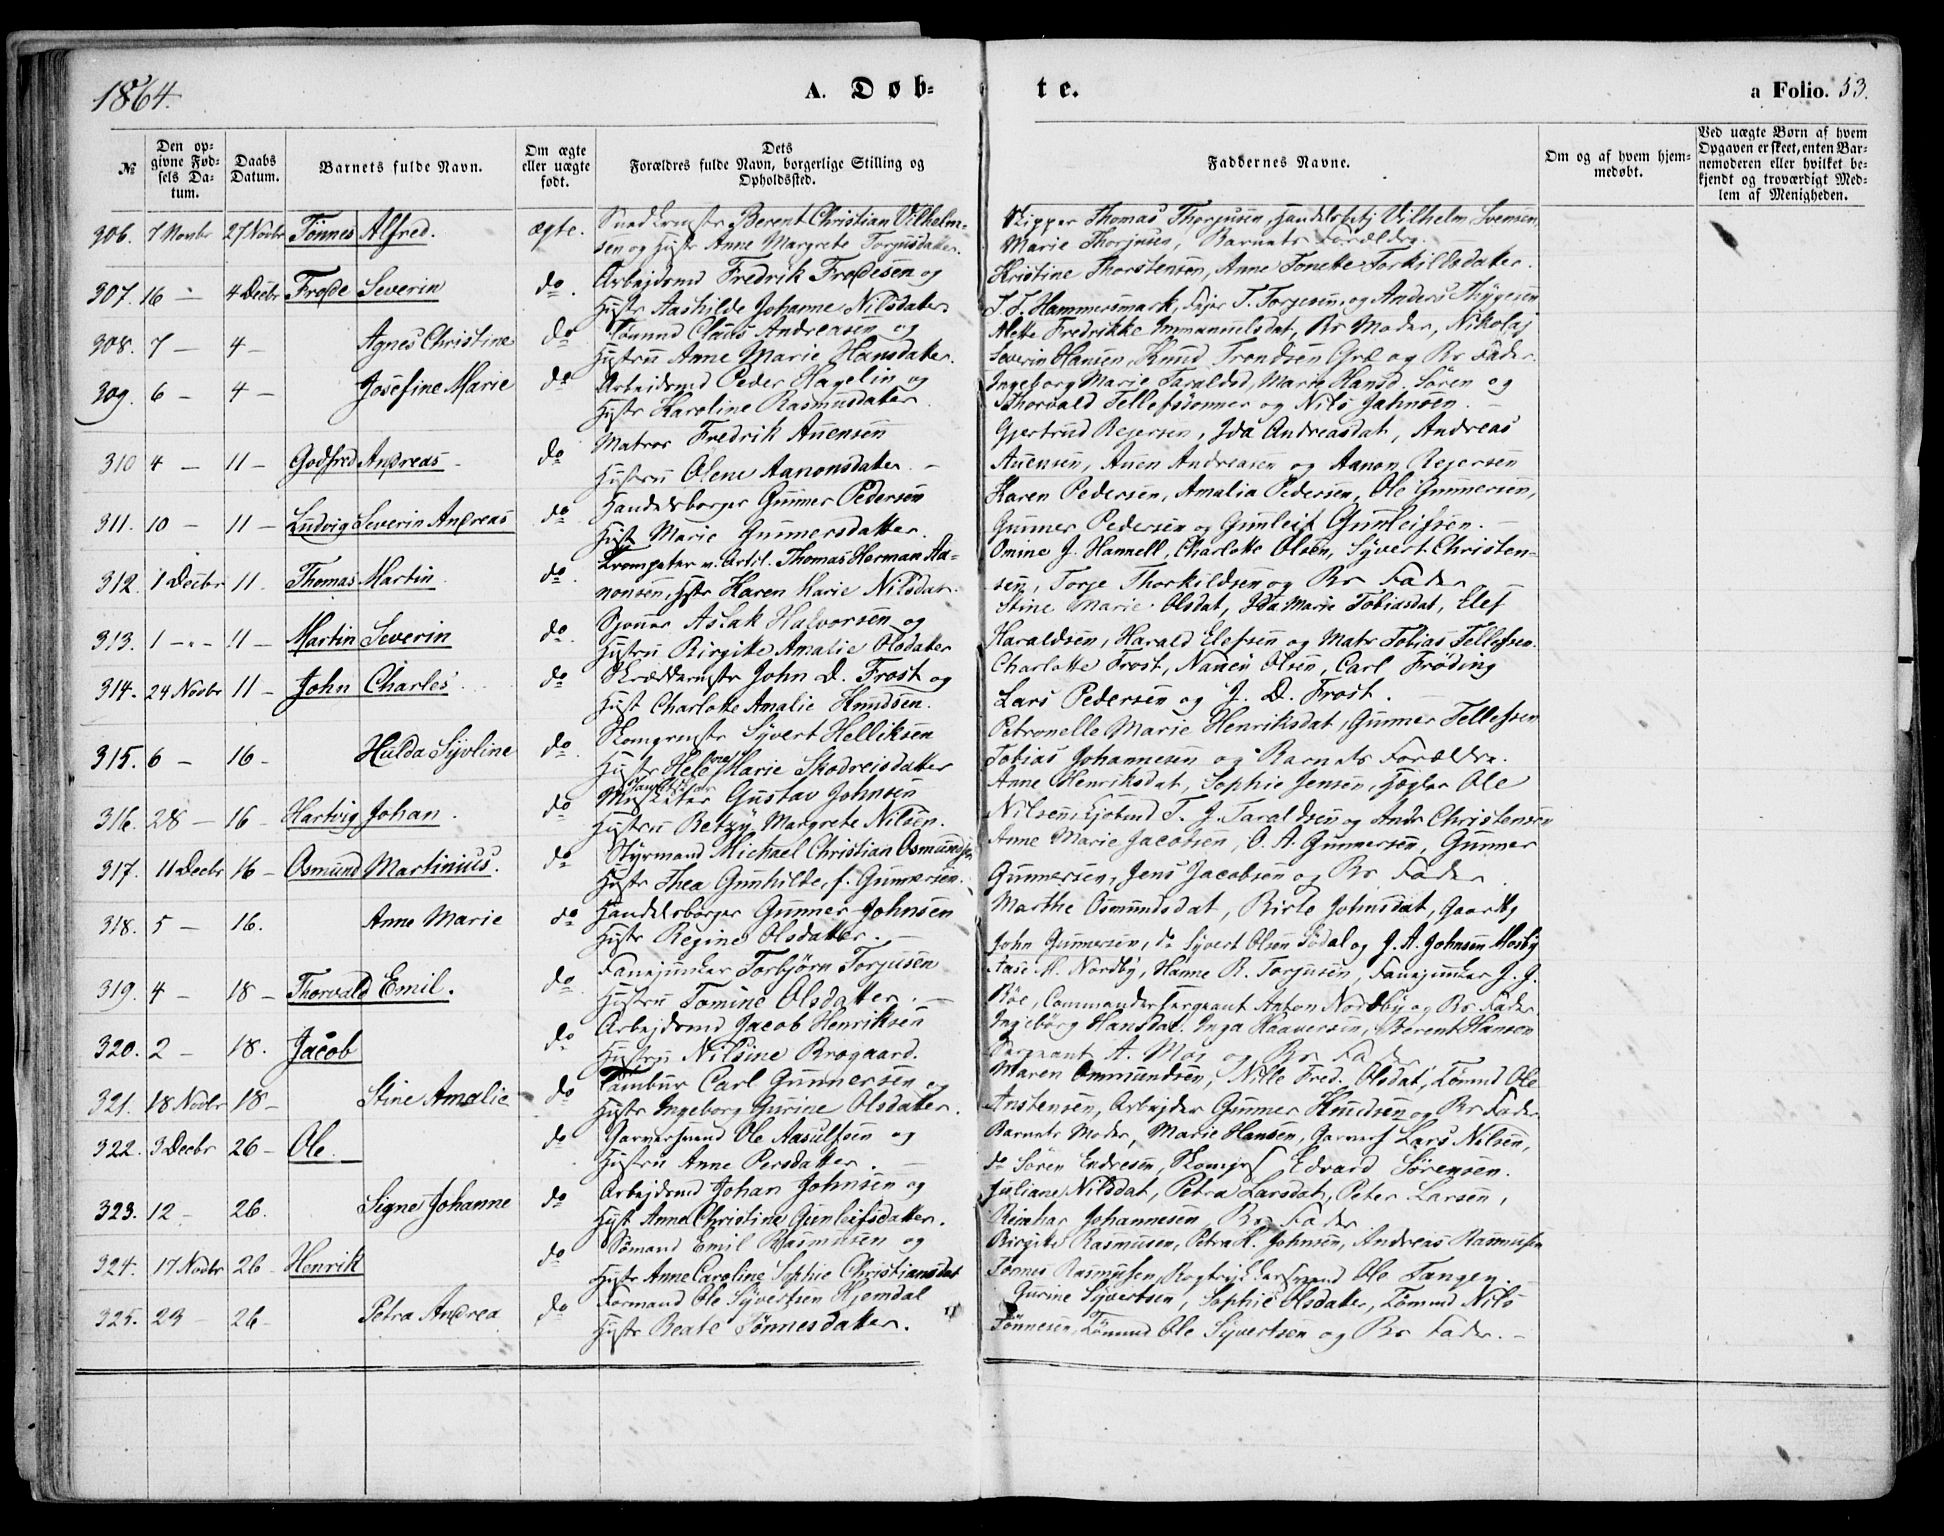 1864.
A. Døb-
te.
a Folio. 53.
№
Den op-
givne Fød-
sels Da-
tum.
Daabs
Datum.
Barnets fulde Navn.
Om ægte
eller uægte
født.
Dets
Forældres fulde Navn, borgerlige Stilling og
Opholdssted.
Faddernes Navne.
Om og af hvem hjem-
medøbt.
Ved uægte Børn af hvem
Opgaven er skeet, enten Bar-
nemoderen eller hvilket be-
kjendt og troværdigt Med-
lem af Menigheden.
306. 7 Novbr 27 Novbr Tønnes Alfred. ægte. Snedkermstr Berent Christian Vilhelm-
sen og Hustr Anne Margrete Torjusdatter.
Skipper Thomas Thorjusen, Handelsbetj Vilhelm Svensen,
Marie Thorjusen, Barnets Forældre.
307. 16 — 4 Decbr Frøde Severin do. Arbejdsmd Fredrik Frødesen og
Hustr Aashilde Johanne Nilsdatter
Kristine Thorstensen, Anne Tonette Torkildsdatter.
T. T. Hammersmark, T. Torjesen, og Anders Thygesen
308. 7 — 4 — Agnes Christine do Tømmd Claus Andreasen og
Hustru Anne Marie Hansdatter.
Mette Fredrikke Immanuelsdat, Bs Moder, Nikolaj
Severin Hansen, Knud Trondsen Græ og Bs Fader.
309. 6 — 4 — Josefine Marie do Arbeidsmd Peder Hagelin og
Hustr Karoline Rasmusdatter.
Ingeborg Marie Taraldsd, Marie Hansd. Søren og
Thorvald Tellefsønner og Nils Jahnsen. —
310 4 — 11 — Godfred Andreas — do Matros Fredrik Auensen
Hustru Olene Aanonsdatter. —
Gjertrud Rejersen, Ida Andreasdat, Andreas
Auensen, Auen Andreasen og Aanon Rejersen
311. 10 — 11 — Ludvig Severin Andreas do Handelsborger Gunner Pedersen
Hust Marie Gunnersdatter.
Karen Pedersen, Amalia Pedersen, Ole Gunnersen,
Gunner Pedersen og Gunleif Gunleifsen. —
312. 1 Decbr 11. Thomas Martin. do. Trompeter v. Artil. Thomas Herman Aa-
nonsen, Hstr Karen Marie Nilsdat.
Omine J. Hannell, Charlotte Olsen, Syvert Christen-
sen, Torje Thorkildsen og Bs Fader
313. 1 -"- 11 — Martin Severin do. Aslak Halvorsen og
Hustru Birgitte Amalie Olsdatter
Stine Marie Olsdat, Ida Marie Tobiasdat, Elef
Haraldsen, Harald Elefsen og Matr Tobias Tellefsen.
314. 24 Novbr 11 — John Charles do Skræddermstr John D. Frost og
Hust Charlotte Amalie Knudsen.
Charlotte Frost, Nanen Olsen, Carl Frøding
Lars Pedersen og J. D. Frost. —
315. 6 — 16 — Hulda Syvline do. Skomgrmstr Syvert Helliksen
Hustr Helene Marie Skodreisdatter
Petronelle Marie Henriksdat, Gunner Tellefsen
Tobias Johannesen og Barnets Forældre.
316. 28 — 16 — Hartvig Johan. do Gustav Johnsen
Hustru Betzy Margrete Nilsen.
Anne Henriksdat, Sophie Jensen, Ole
Nilsen, T. J. Taraldsen og Andr Christensen
317. 11 Decbr 16 — Osmund Martinius. do Styrmand Michael Christian Osmundsen
Hustr Thea Gunhilde, f. Gunnersen.
Anne Marie Jacobsen, O. A. Gunnersen, Gunner
Gunnersen, Jens Jacobsen og Bs Fader.
318. 5 — 16. Anne Marie do Handelsborger Gunner Johnsen
Hustr Regine Olsdatter. —
Marthe Osmundsdat, Birte Johnsdat, Gaardbr
John Gunnersen, do Syvert Olsen Sødal og J. A. Johnsen Mosby
319. 4 — 18 — Thorvald Emil. do. Fanejunker Torbjørn Torjusen
Hustru Tomine Olsdatter. —
Aase M. Nordby, Hanne R. Torjusen, Fanejunker J. G.
Bøe, Commandersergeant Anton Nordby og Bs Fader.
320. 2 — 18. Jacob do. Arbejdsmd Jacob Henriksen
Hustru Nilsine Brogaard.
Ingeborg Hansdat. Inga Kaaversen, Berent Hansen
Sergeant A. Moe og Bs Fader
321. 18 Novbr 18 — Stine Amalie do Tambur Carl Gunnersen og
Hustr Ingeborg Gurine Olsdatter.
Maren Ommundsen, Nille Fred. Olsdat, Tømmd Ole
Anstensen, Arbejder Gunner Knudsen og Bs Fader.
322. 3 Decbr 26 — Ole. do Garversvend Ole Aasulfsen og
Hustru Anne Persdatter. —
Barnets Moder, Marie Hansen, Garvers Lars Nilsen,
do Søren Endresen, Edvard Sørensen.
323. 12 — 26. Signe Johanne do Arbejdsmd Johan Johnsen og
Hust Anne Christine Gunleifsdatter.
Juliane Nilsdat, Petra Larsdat, Peter Larsen,
Reinhar Johannesen, Bs Fader
324. 17 Novbr 26 — Henrik do Sømand Emil Rasmusen og
Hustr Anne Caroline Sophie Christiansdat
Birgitte Rasmusen, Petra K. Johnsen, Andreas Rasmusen
Tønnes Rasmusen, Bogtrykkersvend Ole Tangen. —
325. 23 — 26 — Petra Andrea do Formand Ole Syvertsen Kjemdal
Hustr Beate Tønnesdatter.
Gurine Syvertsen, Sophie Olsdatter, Tømmd Nils
Tønnesen, Tømmd Ole Syvertsen og Bs Fader. —